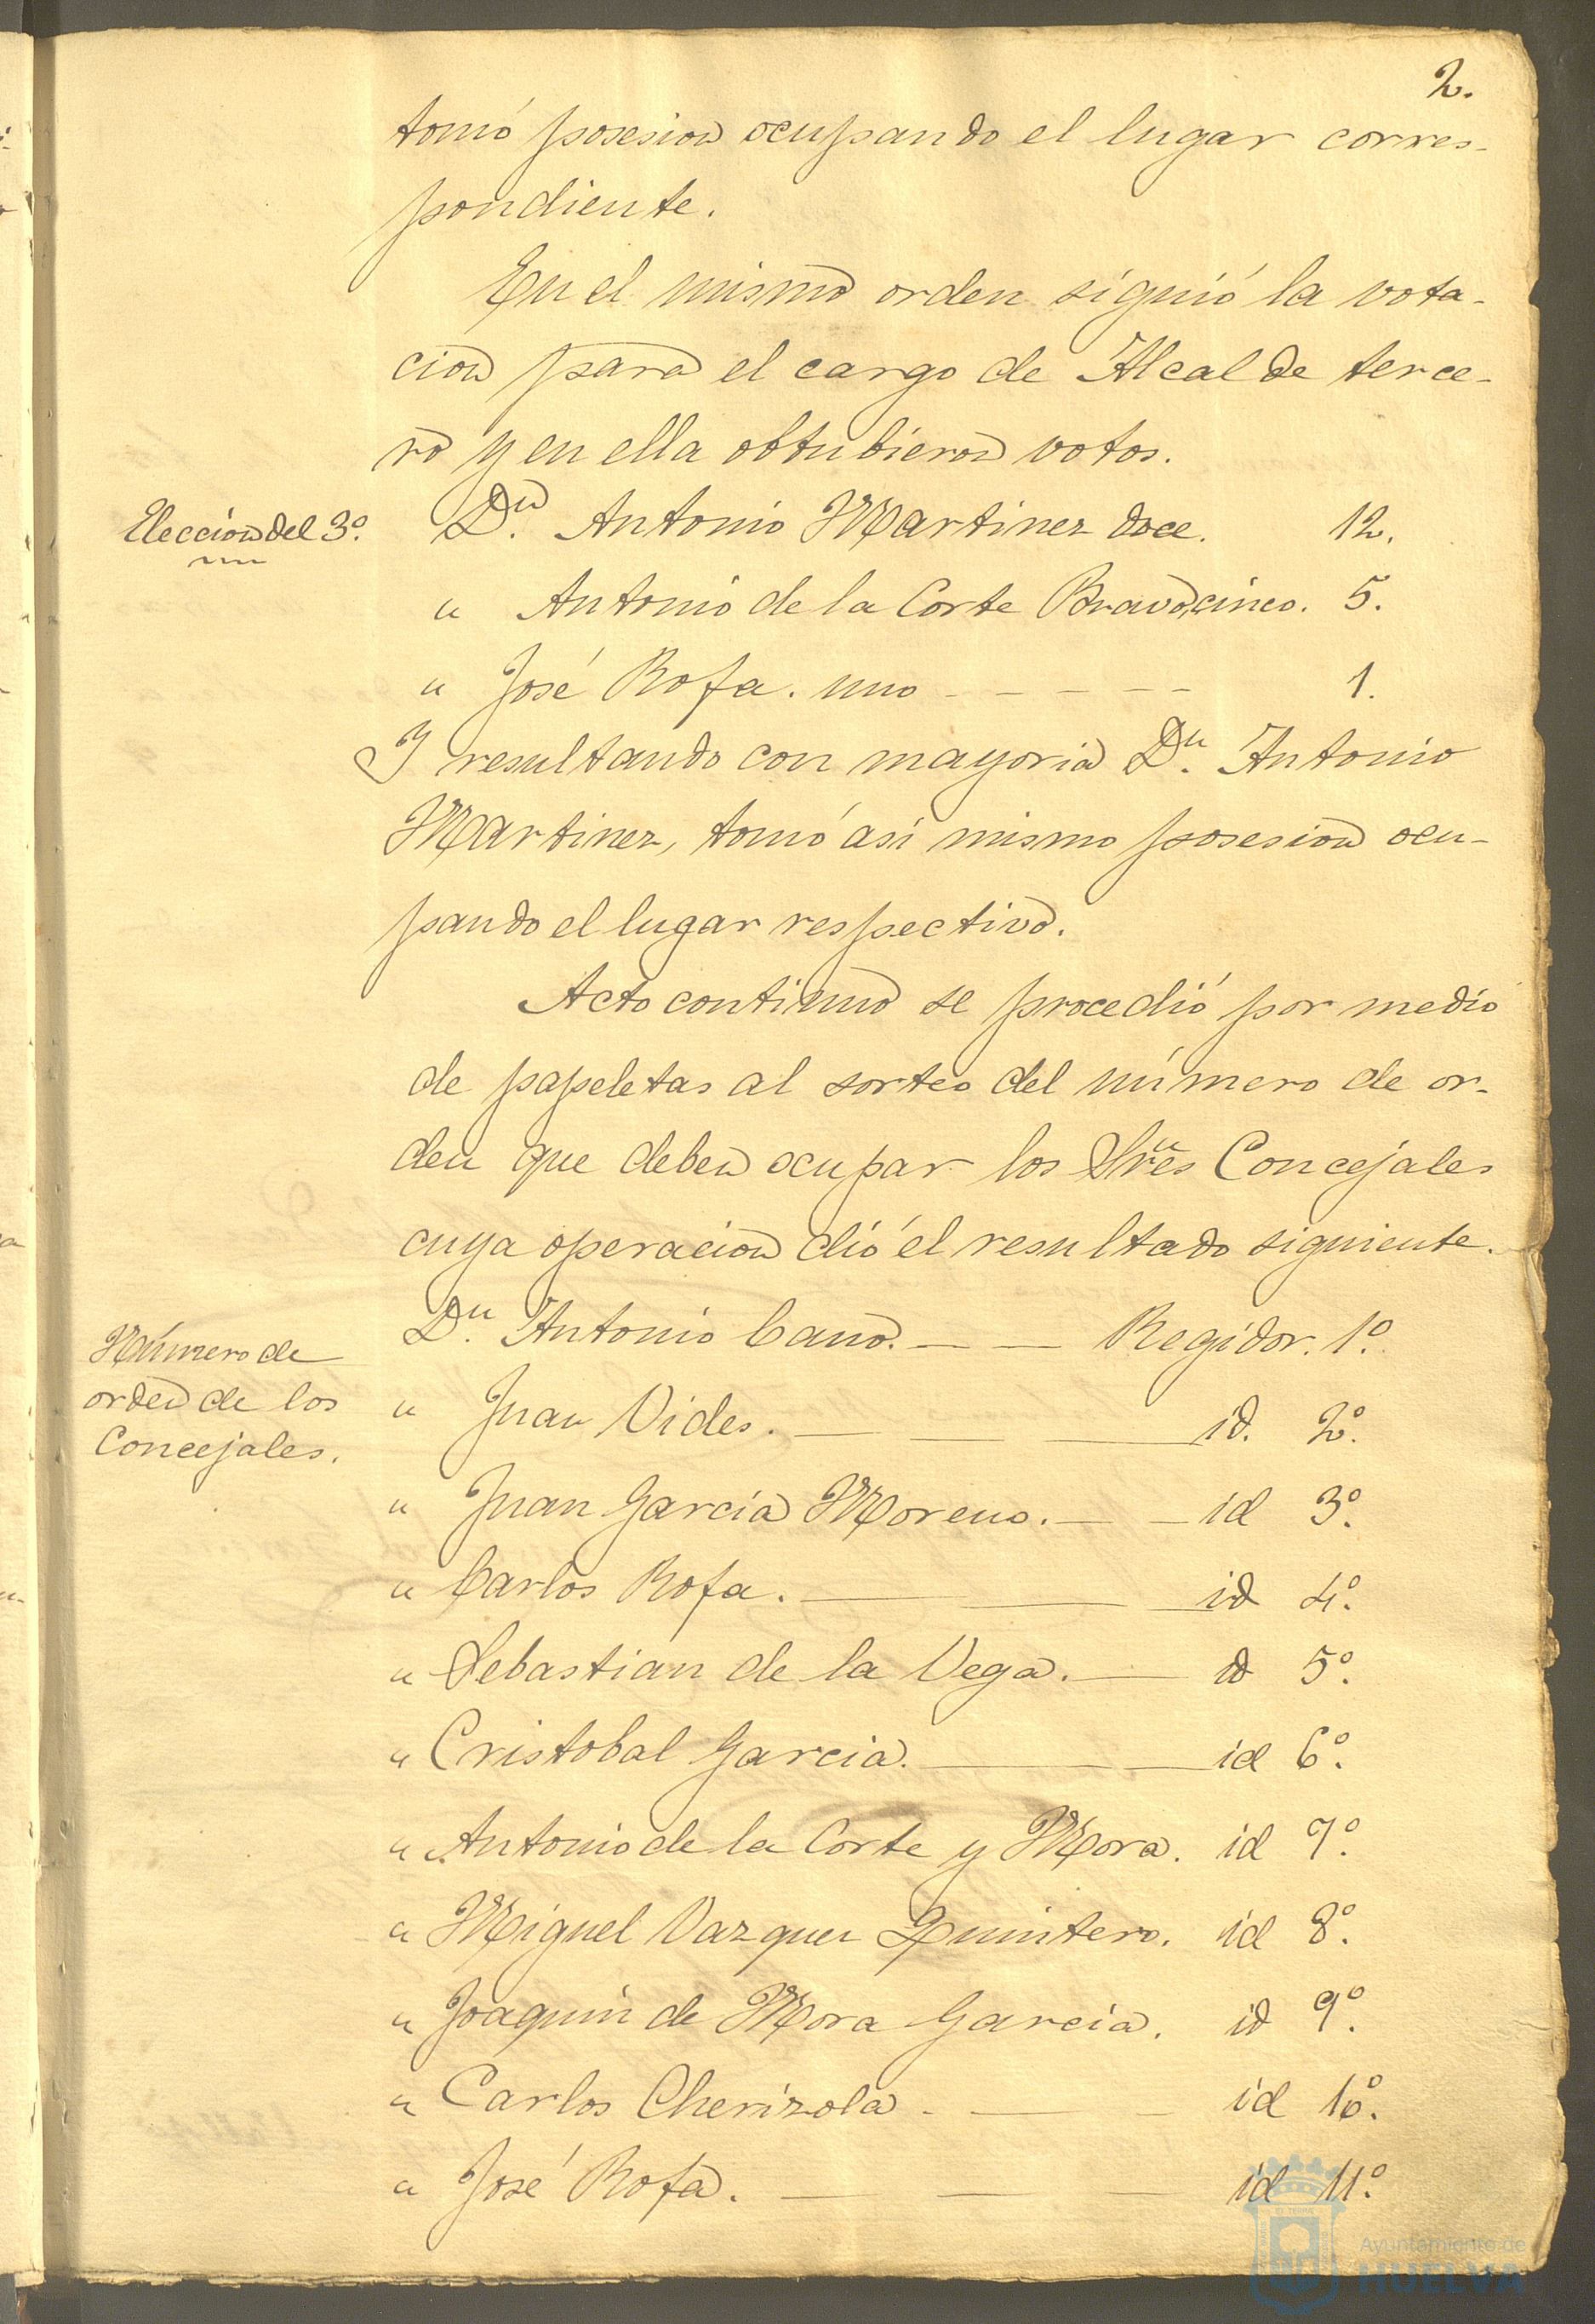 2.
tomó posesion ocupando el lugar corres-
pondiente.
En el mismo orden siguió la vota-
cion para el cargo de Alcalde terce-
ro y en ella obtubieron votos.
Eleccion del 3º.
Dn. Antonio Martinez doce. 12.
" Antonio de la Corte Bravo, cinco. 5.
" José Rofa. uno - - - - - 1.
Y resultando con mayoria Dn. Antonio
Martinez, tomó asi mismo posesion ocu-
pando el lugar respectivo.
Acto continuo se procedió por medio
de papeletas al sorteo del número de or-
den que deben ocupar los Sres Concejales
cuya operacion dió el resultado siguiente.
Número de
orden de los
Concejales.
Dn. Antonio Cano. — — Regidor. 1º.
" Juan Vides. — — — id. 2º.
" Juan Garcia Moreno. — — id 3º.
" Carlos Rofa. — — — id 4º.
" Sebastian de la Vega. — id 5º.
" Cristobal Garcia. — — id 6º.
" Antonio de la Corte y Mora. id 7º.
" Miguel Vazquez Quintero. id 8º.
" Joaquin de Mora Garcia. id 9º.
" Carlos Cherizola - — - id 10º.
" José Rofa. — — — id 11º.
Ayuntamiento de
HUELVA